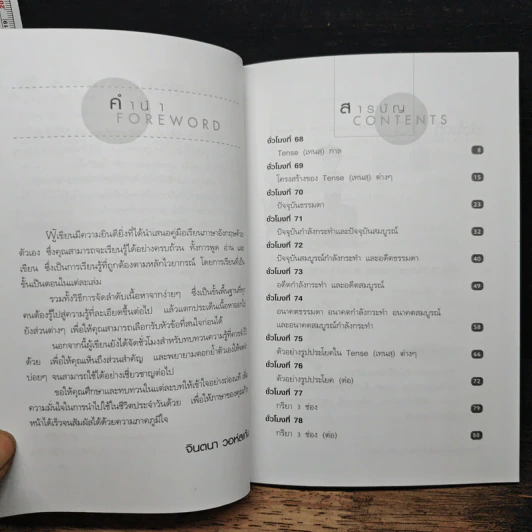 คำนำ
FOREWORD
ผู้เขียนมีความยินดียิ่งที่ได้นำเสนอคู่มือเรียนภาษาอังกฤษด้วย
ตัวเอง ซึ่งคุณสามารถจะเรียนรู้ได้อย่างครบถ้วน ทั้งการพูด อ่าน และ
เขียน ซึ่งเป็นการเรียนรู้ที่ถูกต้องตามหลักไวยากรณ์ โดยการเรียนรู้เป็น
ขั้นเป็นตอนในแต่ละเล่ม
รวมทั้งวิธีการจัดลำดับเนื้อหาจากง่ายๆ ซึ่งเป็นขั้นพื้นฐานที่ทุก
คนต้องรู้ไปสู่ความรู้ที่ละเอียดขึ้นต่อไป แล้วแตกประเด็นเนื้อหาออกไป
ยังส่วนต่างๆ เพื่อให้คุณสามารถเลือกรับหัวข้อที่สนใจก่อนได้
นอกจากนี้ผู้เขียนยังได้จัดชั่วโมงสำหรับทบทวนความรู้ที่ควรจำไว้
ด้วย เพื่อให้คุณเห็นถึงส่วนสำคัญ และพยายามตอกย้ำตัวเองให้
บ่อยๆ จนสามารถใช้ได้อย่างเชี่ยวชาญต่อไป
ขอให้คุณศึกษาและทบทวนในแต่ละบทให้เข้าใจอย่างถ่องแท้ เพิ่ม
ความมั่นใจในการนำไปใช้ในชีวิตประจำวันด้วย เพื่อให้ภาษาของคุณ
หน้าได้เร็วจนสัมผัสได้ด้วยความภาคภูมิใจ
จินตนา
สารบัญ
CONTENTS
ชั่วโมงที่ 68
Tense (เทนส) กาล 8
ชั่วโมงที่ 69
โครงสร้างของ Tense (เทนส) ต่างๆ 15
ชั่วโมงที่ 70
ปัจจุบันธรรมดา 23
ชั่วโมงที่ 71
ปัจจุบันกำลังกระทำและปัจจุบันสมบูรณ์ 32
ชั่วโมงที่ 72
ปัจจุบันสมบูรณ์กำลังกระทำ และอดีตธรรมดา 40
ชั่วโมงที่ 73
อดีตกำลังกระทำ และอดีตสมบูรณ์ 49
ชั่วโมงที่ 74
อนาคตธรรมดา อนาคตกำลังกระทำ อนาคตสมบูรณ์
และอนาคตสมบูรณ์กำลังกระทำ 58
ชั่วโมงที่ 75
ตัวอย่างรูปประโยคใน Tense (เทนส) ต่างๆ 66
ชั่วโมงที่ 76
ตัวอย่างรูปประโยค (ต่อ) 72
ชั่วโมงที่ 77
กริยา 3 ช่อง 79
ชั่วโมงที่ 78
กริยา 3 ช่อง (ต่อ)